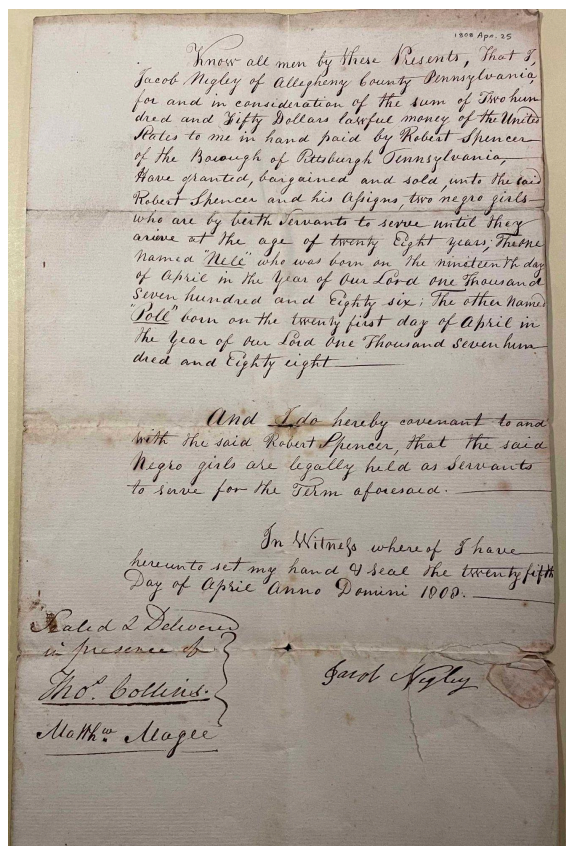 1808 Apr. 25
Know all men by these Presents, That I,
Jacob Nigley of Allegheny County Pennsylvania
for and in consideration of the sum of Two hun
dred and Fifty Dollars lawful money of the United
States to me in hand paid by Robert Spencer
of the Borough of Pittsburgh Pennsylvania,
Have granted, bargained and sold, unto the said
Robert Spencer and his Assigns, two negro girls
who are by birth Servants to serve until they
arive at the age of twenty Eight years, The one
named "Nele" who was born on the nineteenth day
of April in the Year of Our Lord one Thousand
Seven hundred and Eighty six; The other Named
"Poll" born on the twenty first day of April in
the Year of our Lord one Thousand Seven hun
dred and Eighty eight
And I do hereby covenant to and
with the said Robert Spencer, that the said
Negro girls are legally held as Servants
to serve for the Term aforesaid.
In Witness whereof I have
hereunto set my hand & seal the twenty fifth
Day of April Anno Domini 1808.
Sealed & Delivered
in presence of
Thos. Collins.
Jacob Nigley
Matthw Magee